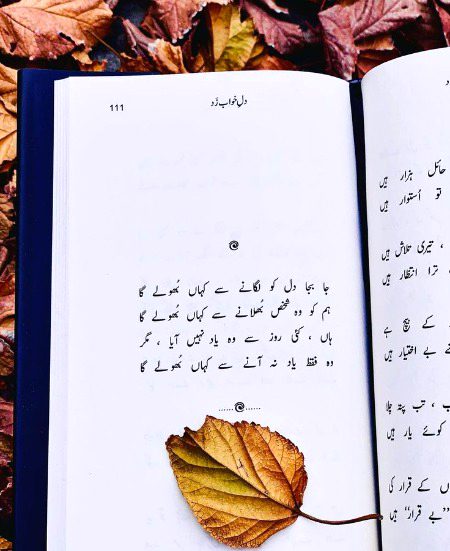 حائل ہزار ہیں
تو اُستوار ہیں
، تیری تلاش ہیں
ترا انتظار ہیں
کے بیچ ہے
بے اختیار ہیں
، تب پتہ چلا
کوئے یار ہیں
کے قرار کی
بے قرار“ ہیں
دلِ خواب زَد
111
جا بجا دل کو لگانے سے کہاں بُھولے گا
ہم کو وہ شخص بُھلانے سے کہاں بُھولے گا
ہاں ، کئی روز سے وہ یاد نہیں آیا ، مگر
وہ فقط یاد نہ آنے سے کہاں بُھولے گا